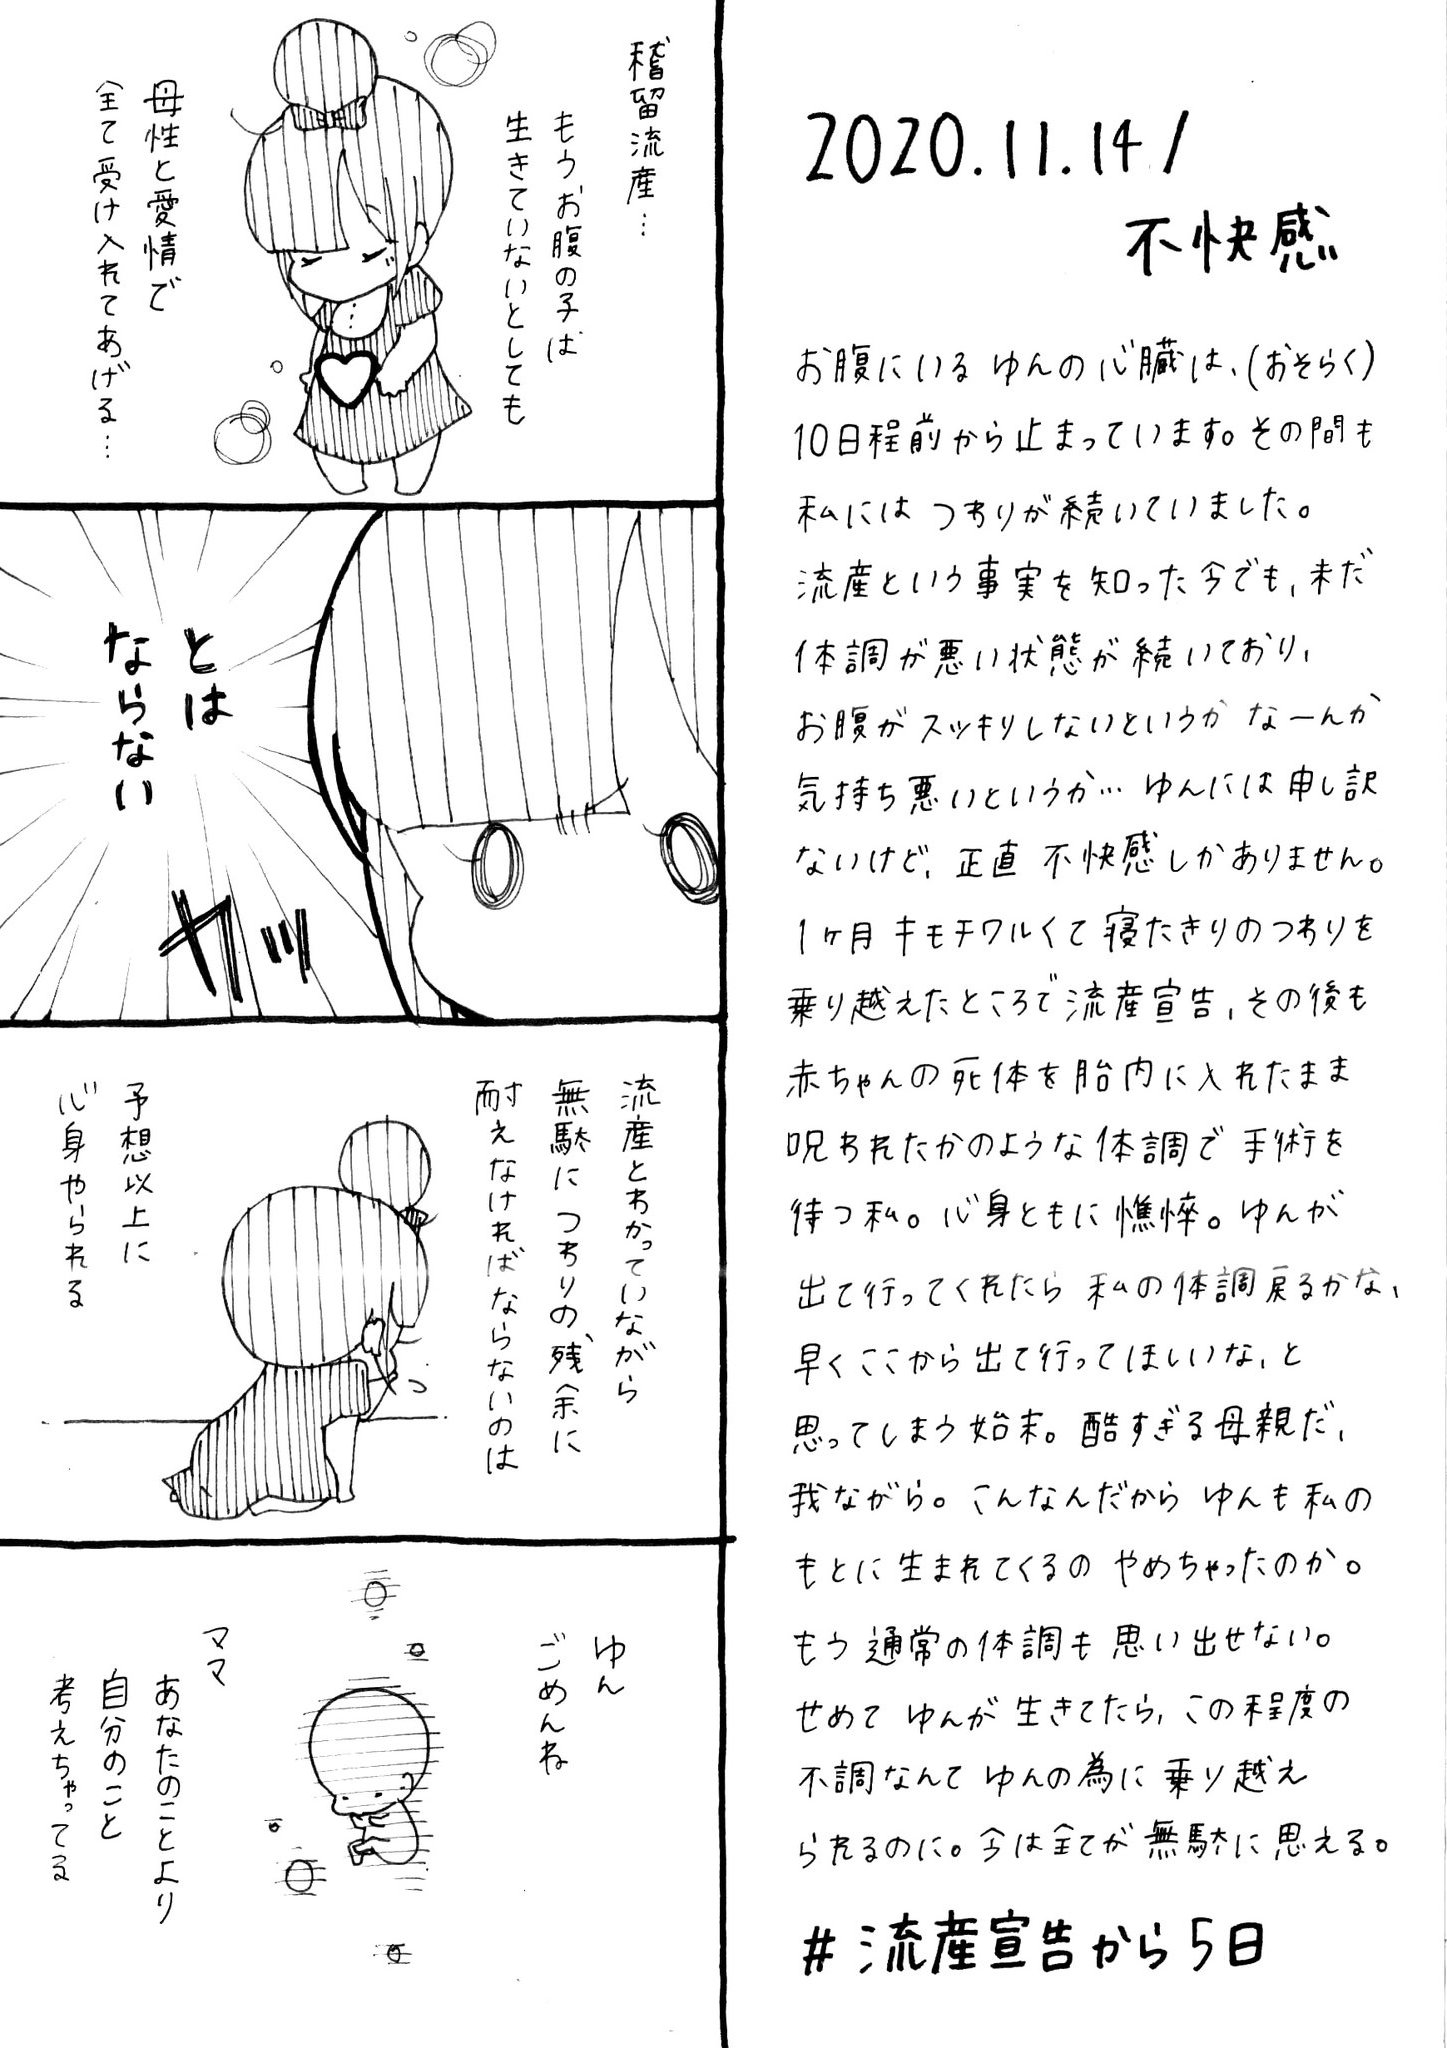 2020.11.14/
不快感
お腹にいる ゆんの心臓は、(おそらく)
10日程前から止まっています。その間も
私には つわりが続いていました。
流産という事実を知った今でも、未だ
体調が悪い状態が続いており、
お腹がスッキリしないというか なーんか
気持ち悪いというか… ゆんには申し訳
ないけど、正直 不快感しかありません。
1ヶ月 キモチワルくて寝たきりのつわりを
乗り越えたところで流産宣告、その後も
赤ちゃんの死体を胎内に入れたまま
呪われたかのような体調で 手術を
待つ私。心身ともに憔悴。ゆんが
出て行ってくれたら 私の体調戻るかな、
早くここから出て行ってほしいな、と
思ってしまう始末。酷すぎる母親だ、
我ながら。こんなんだから ゆんも私の
もとに生まれてくるの やめちゃったのか。
もう 通常の体調も 思い出せない。
せめて ゆんが 生きてたら、この程度の
不調なんて ゆんの為に 乗り越え
られるのに。今は全てが 無駄に思える。
#流産宣告から5日
稽留流産…
もうお腹の子は
生きていないとしても
母性と愛情で
全て受け入れてあげる…
とは
ならない
カッ
流産とわかっていながら
無駄につわりの残余に
耐えなければならないのは
予想以上に
心身やられる
ゆん
ごめんね
ママ
あなたのことより
自分のこと
考えちゃってる